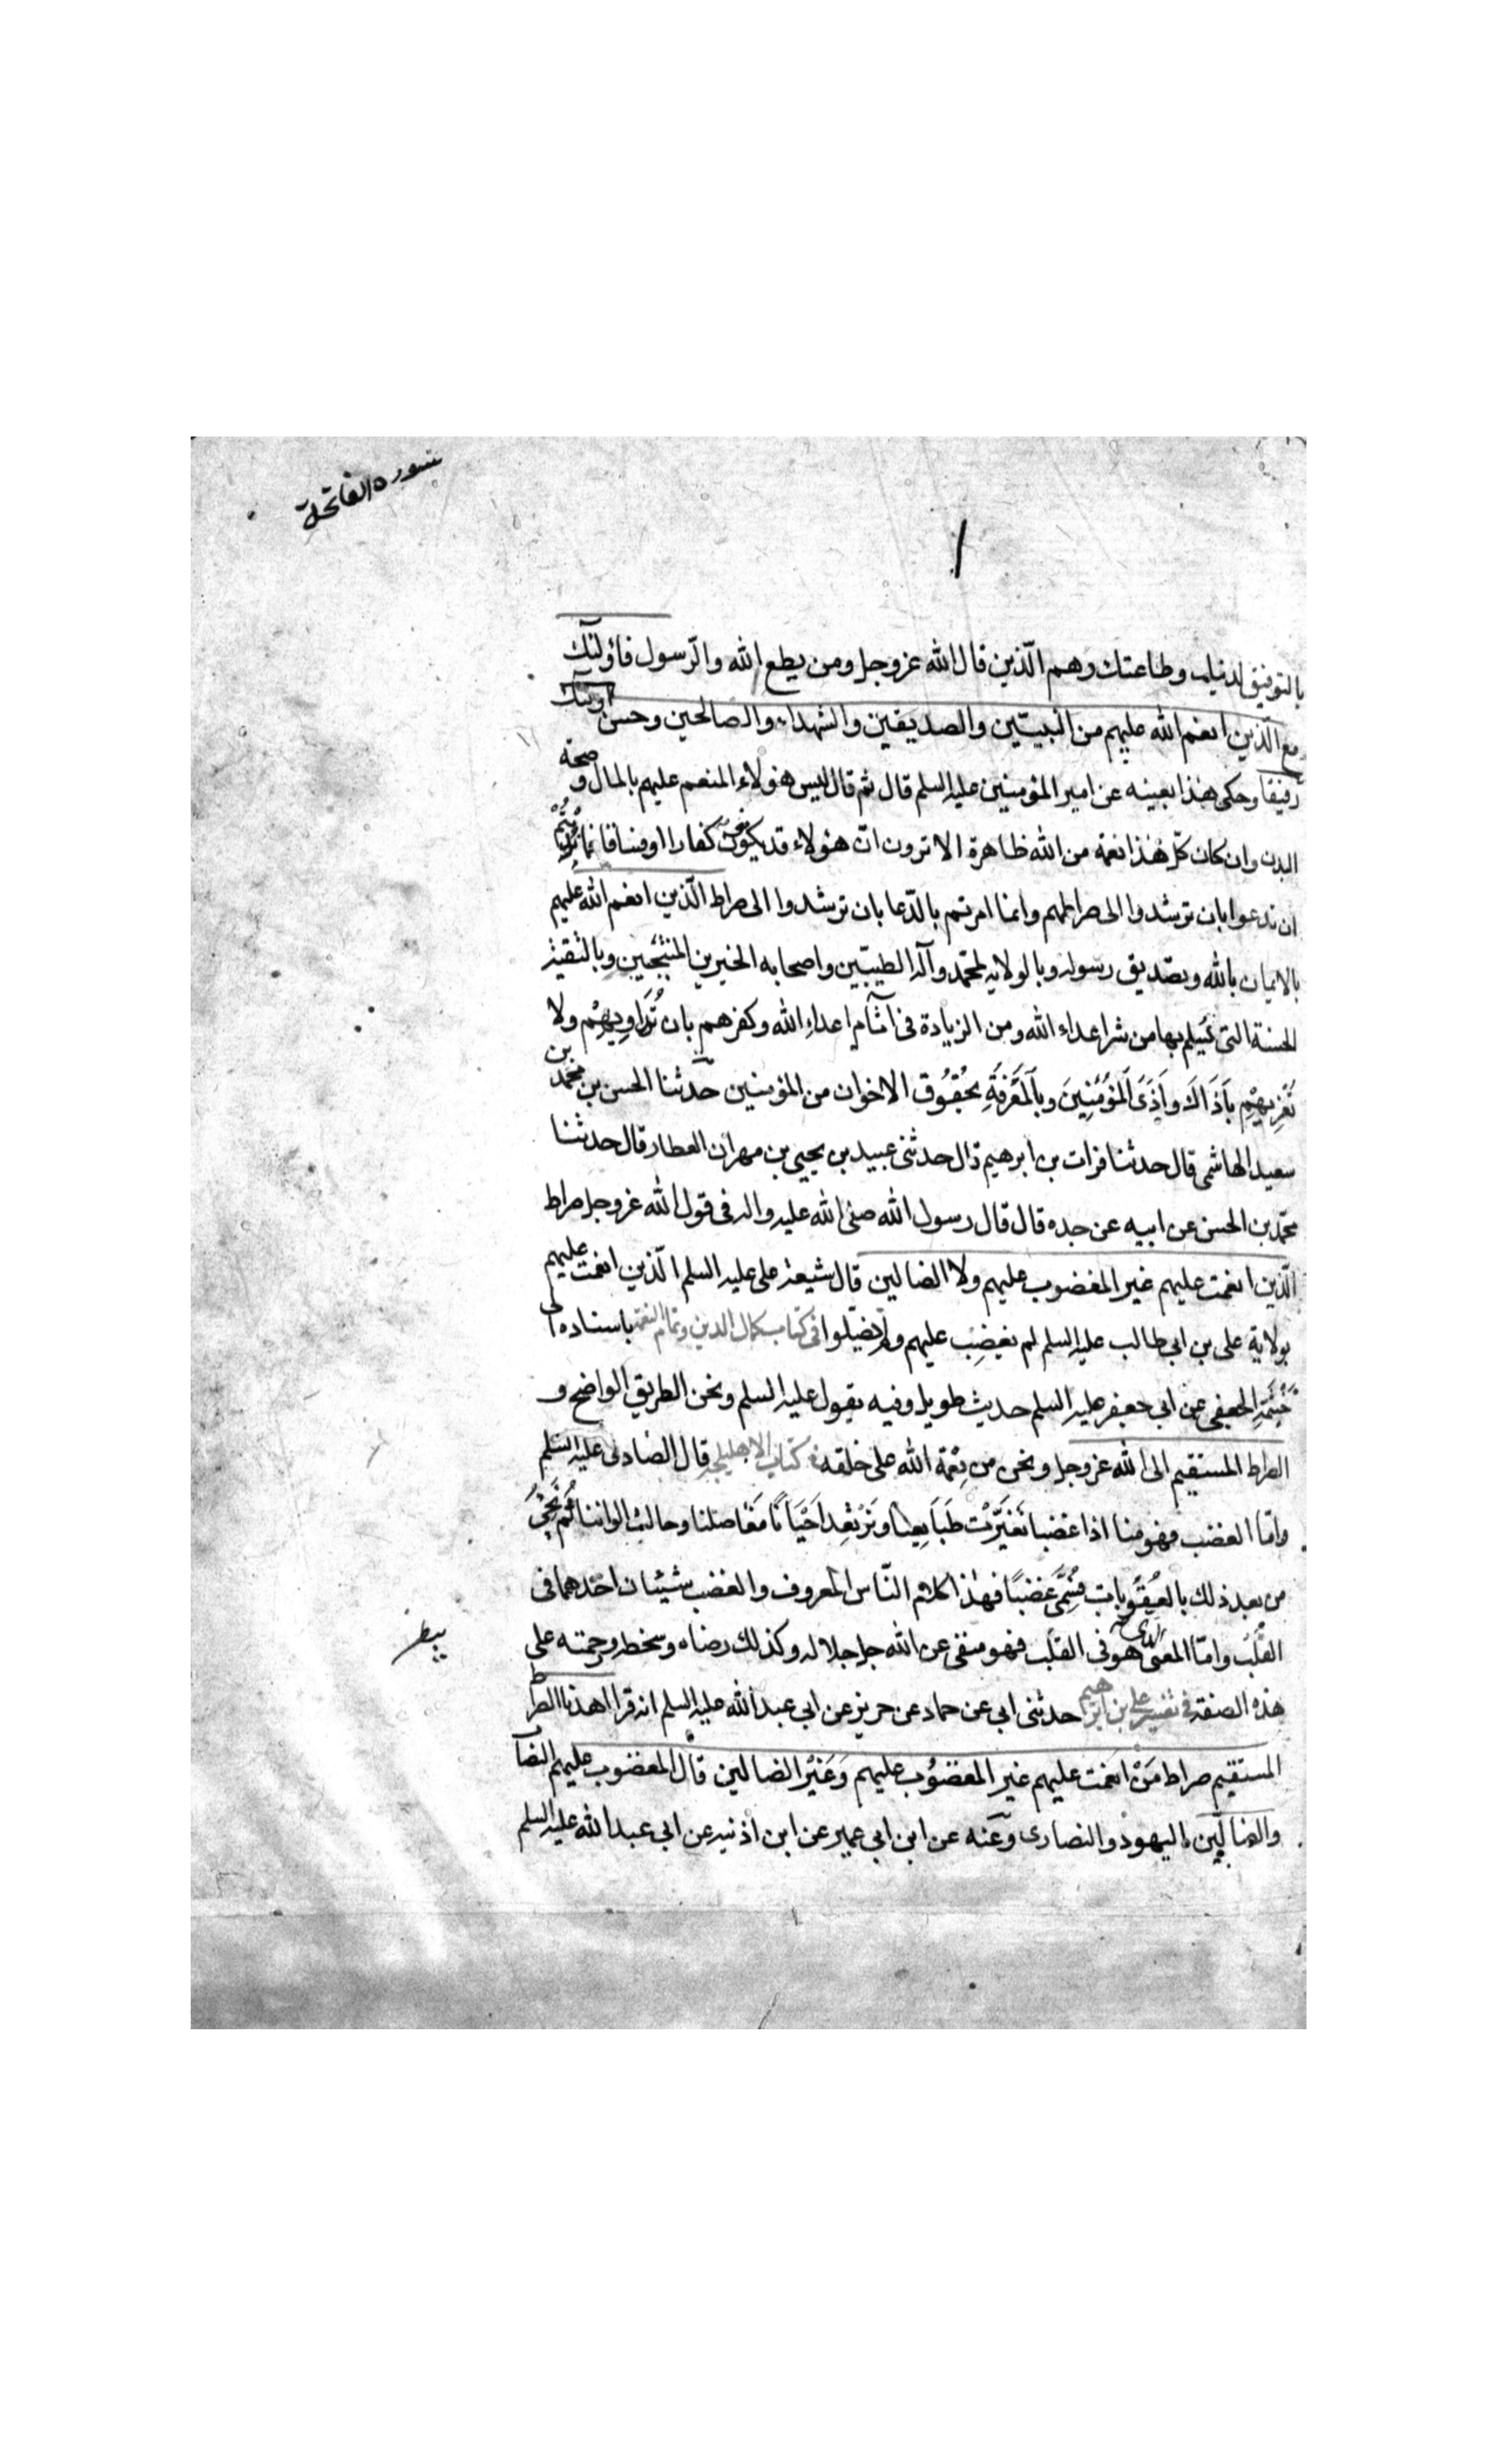 سورة الفاتحة
بالتوفيق لدينك وطاعتك وهم الّذين قال الله عزوجل ومن يطع الله والرّسول فاولئك
مع الّذين انعم الله عليهم من النبيّين والصديقين والشهداء والصالحين وحسن اولئك
رفيقا وحكى هذا بعينه عن امير المؤمنين عليه السلم قال ثم قال ليس هؤلاء المنعم عليهم بالمال و صحة
البدن وان كان كلّ هذا نعمة من الله ظاهرة الا ترون انّ هؤلاء قد يكونون كفارا او فساقا فما
ان تدعوا بان ترشدوا الى صراطهم وانما امرتم بالدّعا بان ترشدوا الى صراط الّذين انعم الله عليهم
بالايمان بالله وبصديق رسوله وبالولايه لمحمّد وآله الطيبّين واصحابه الخيرين المنتجبين وبالتقيّة
الحسنة التى يُسلم بها من شر اعداء الله ومن الزيادة فى آثام اعداء الله وكفرهم بان تُدَاوِيهِمْ ولا
تغريهِمْ بِاَذَاكَ واَذَى اَلمُؤمِنِينَ وبِاَلمَعْرَفَةِ بحُقُوق الاخوان من المؤمنين حدّثنا الحسن بن محمد بن
سعيد الهاشمى قال حدثنا فرات بن ابرهيم قال حدثنى عبيد بن يحيى بن مهران العطار قال حدثنا
محمّد بن الحسن عن ابيه عن جده قال قال رسول الله صلى الله عليه واله فى قول الله عزوجل صراط
الّذين انعمت عليهم غير المغضوب عليهم ولا الضالين قال شيعة على عليه السلم الّذين انعمت عليهم
بولاية على بن ابى طالب عليه السلم لم يغضب عليهم ولم يضلّوا فى كتاب كمال الدين وتمام النعمة باسناده الى
خَيْثَمَةِ الجعفى عن ابى جعفر عليه السلم حديث طويل وفيه يقول عليه السلم ونحن الطريق الواضح و
الصراط المستقيم الى الله عزوجل ونحن من نِعْمة الله على خلقه فى كتاب الاهليلجه قال الصادق عليه السلم
وامّا الغضب فهو منا اذا غضبنا تَغَيَّرَتْ طَبَايِعنا وتَرْتَعِد اَحْيَانًا مَفَاصلنا وحالت الواننا ثُمَّ نَجِئُ
من بعد ذلك بالعُقُوبات فسُمَّى غضبًا فهذا كلام النّاس المعروف والغضب شيئان احدهما فى
القلْب وامّا المعنى الذى هو فى القلب فهو منفى عن الله جل جلاله وكذلك رضاه وسخطه ورحمته على
هذه الصفة فى تفسير على بن ابرهيم حدثنى ابى عن حماد عن حريز عن ابى عبدالله عليه السلم انه قرا اهدنا الصراط
المستقيم صراط مَنْ انعمت عليهم غير المغضُوب عليهم وَغَيْر الضالين قال المغضوب عليهم النصاب
والضالّين اليهود والنصارى وعنه عن ابن ابى عمير عن ابن اذنيه عن ابى عبد الله عليه السلم